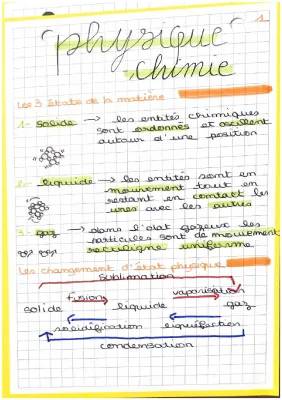 1
physique
chimie
Les 3 états de la matière
1- solide → les entités chimiques
sont ordonnés et oscillent
autour d'une position
2- liquide → les entités sont en
mouvement tout en
restant en contact les
unes avec les autres
3- gaz → dans l'état gazeux les
particules sont de mouvement
rectiligne uniforme.
Les changement d'état physique
sublimation
fusion vaporisation
solide liquide gaz
solidification liquéfaction
condensation